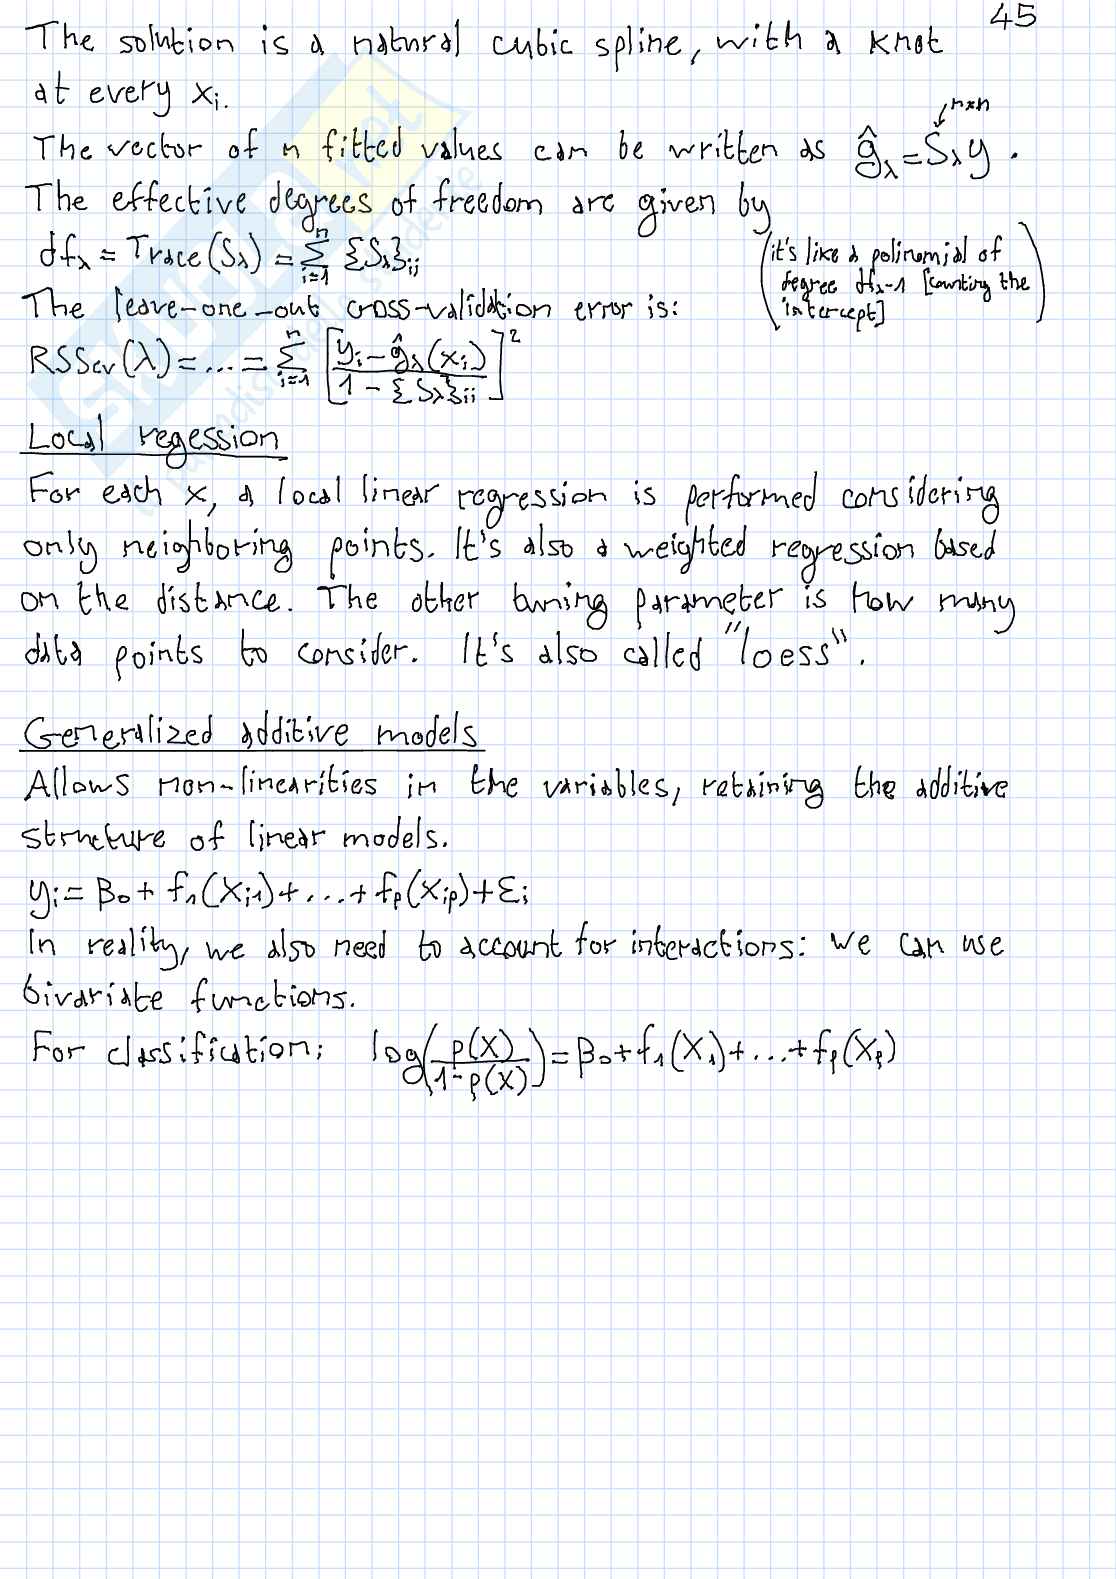 45
The solution is a natural cubic spline, with a knot
at every xᵢ.
n×n
The vector of n fitted values can be written as ĝ_λ = S_λ y.
The effective degrees of freedom are given by
df_λ = Trace(S_λ) = Σ_{i=1}^{n} {S_λ}_{ii}
(it's like a polinomial of
degree df_λ-1 [counting the
intercept])
The leave-one-out cross-validation error is:
RSS_cv(λ) = ... = Σ_{i=1}^{n} [(y_i - ĝ_λ(x_i)) / (1 - {S_λ}_{ii})]²
Local regession
For each x, a local linear regression is performed considering
only neighboring points. It's also a weighted regression based
on the distance. The other tuning parameter is how many
data points to consider. It's also called "loess".
Generalized additive models
Allows non-linearities in the variables, retaining the additive
structure of linear models.
y_i = β₀ + f₁(x_{i1}) + ... + f_p(x_{ip}) + ε_i
In reality, we also need to account for interactions: we can use
bivariate functions.
For classification: log(p(X) / (1-p(X))) = β₀ + f₁(X₁) + ... + f_p(X_p)